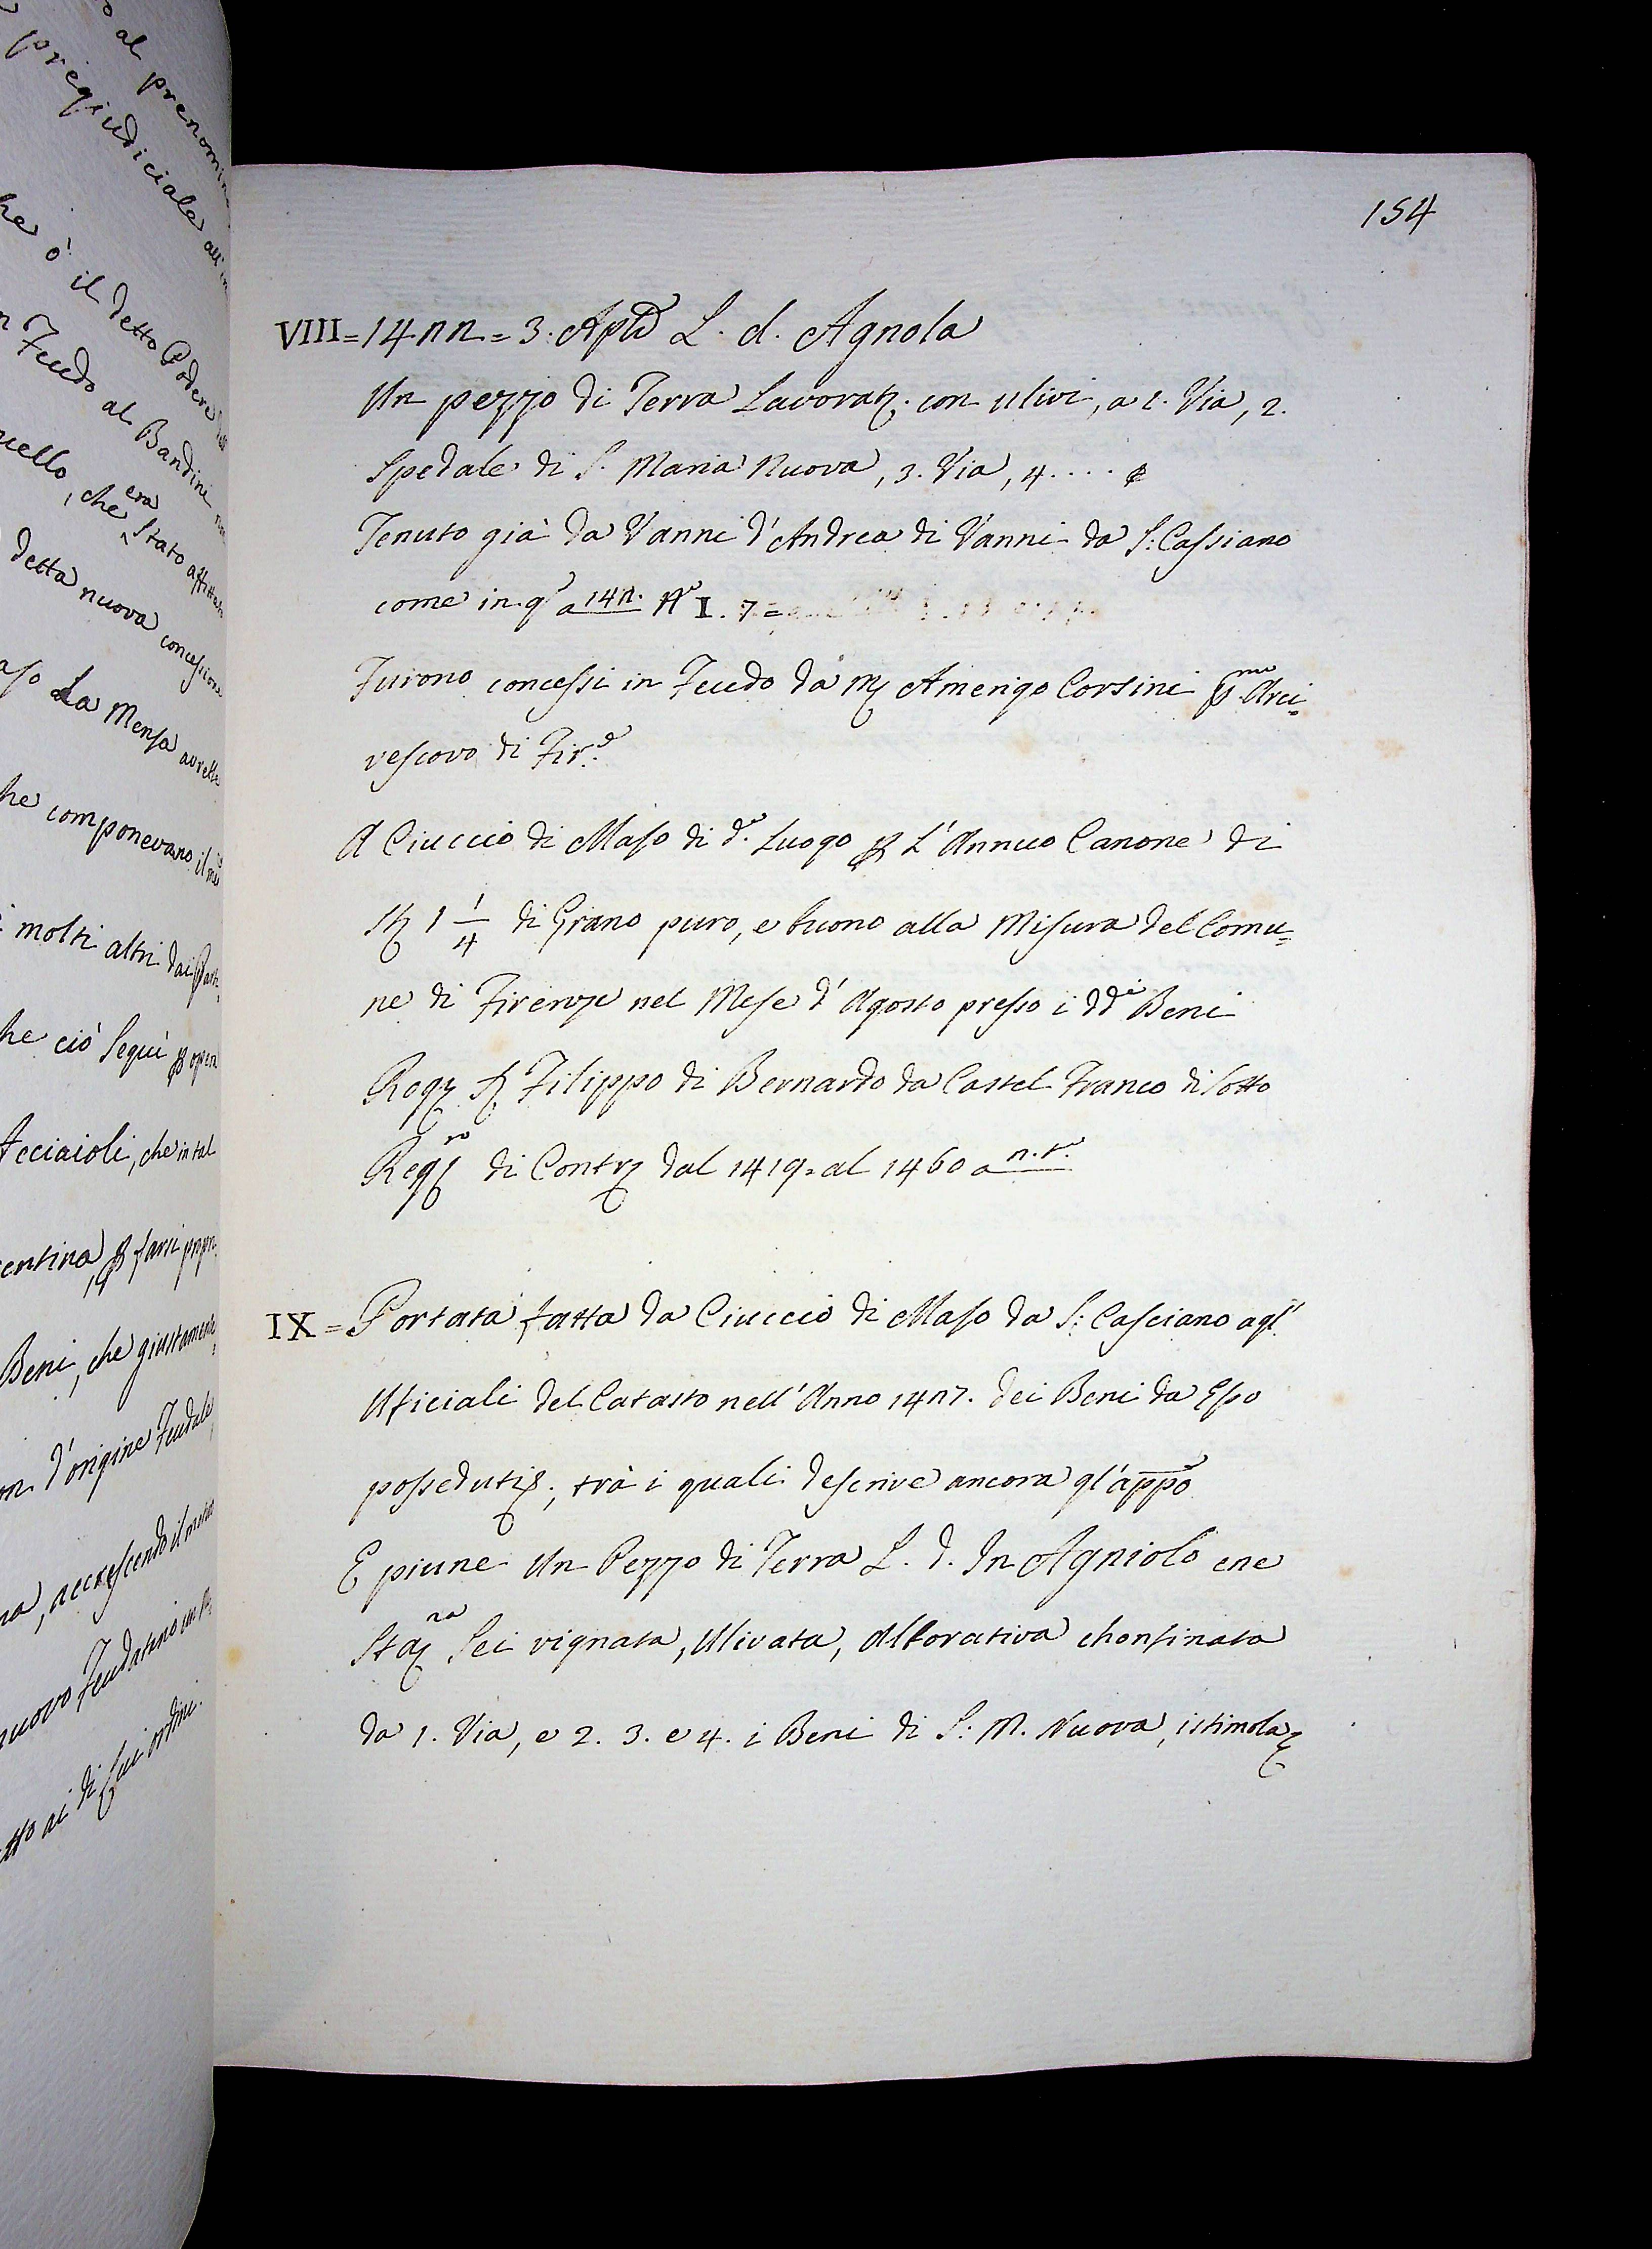 154
VIII = 1422 = 3. Aple L. d. Agnola
Un pezzo di Terra Lavorat. con ulivi, a 1. Via, 2.
Spedale di S. Maria Nuova, 3. Via, 4. . . . .
Tenuto già da Vanni d'Andrea di Vanni da S: Cassiano
come in q.o a 142. N.o I. 7 =
Furono concessi in Feudo da M. Amerigo Corsini p.mo Arci=
vescovo di Fir.e
A Ciuccio di Maso di d.o Luogo p L'Annuo Canone di
St 1 1/4 di Grano puro, e buono alla Misura del Comu=
ne di Firenze nel Mese d'Agosto presso i dd.i Beni
Rog. S. Filippo di Bernardo da Castel Franco di Sotto
Reg.ro di Contr. dal 1419. al 1460 a
IX = Portata fatta da Ciuccio di Maso da S: Casciano agl'
Uficiali del Catasto nell'Anno 1427. dei Beni da Esso
posseduti; trà i quali descrive ancora gl'app.o
E piune Un Pezzo di Terra L. d. In Agniolo ene
Sta.ra Sei vignata, Ulivata, Allorativa chonfinata
da 1. Via, e 2. 3. e 4. i Beni di S: M. Nuova, istimola
al prenomin
pregiudiciale all'in
he ò il detto Podere
n Feudo al Bandini
uello, che era Stato affittato
detta nuova concessione
aso La Mensa avrebbe
he componevano il
i molti altri dai
he ciò Seguì p opera
Acciaioli, che in tal
entina, p farsi
Beni, che giustamente
on d'origine Feudale
na, accrescendo il
nuovo Feudatario
tto ai di Lui ordini.